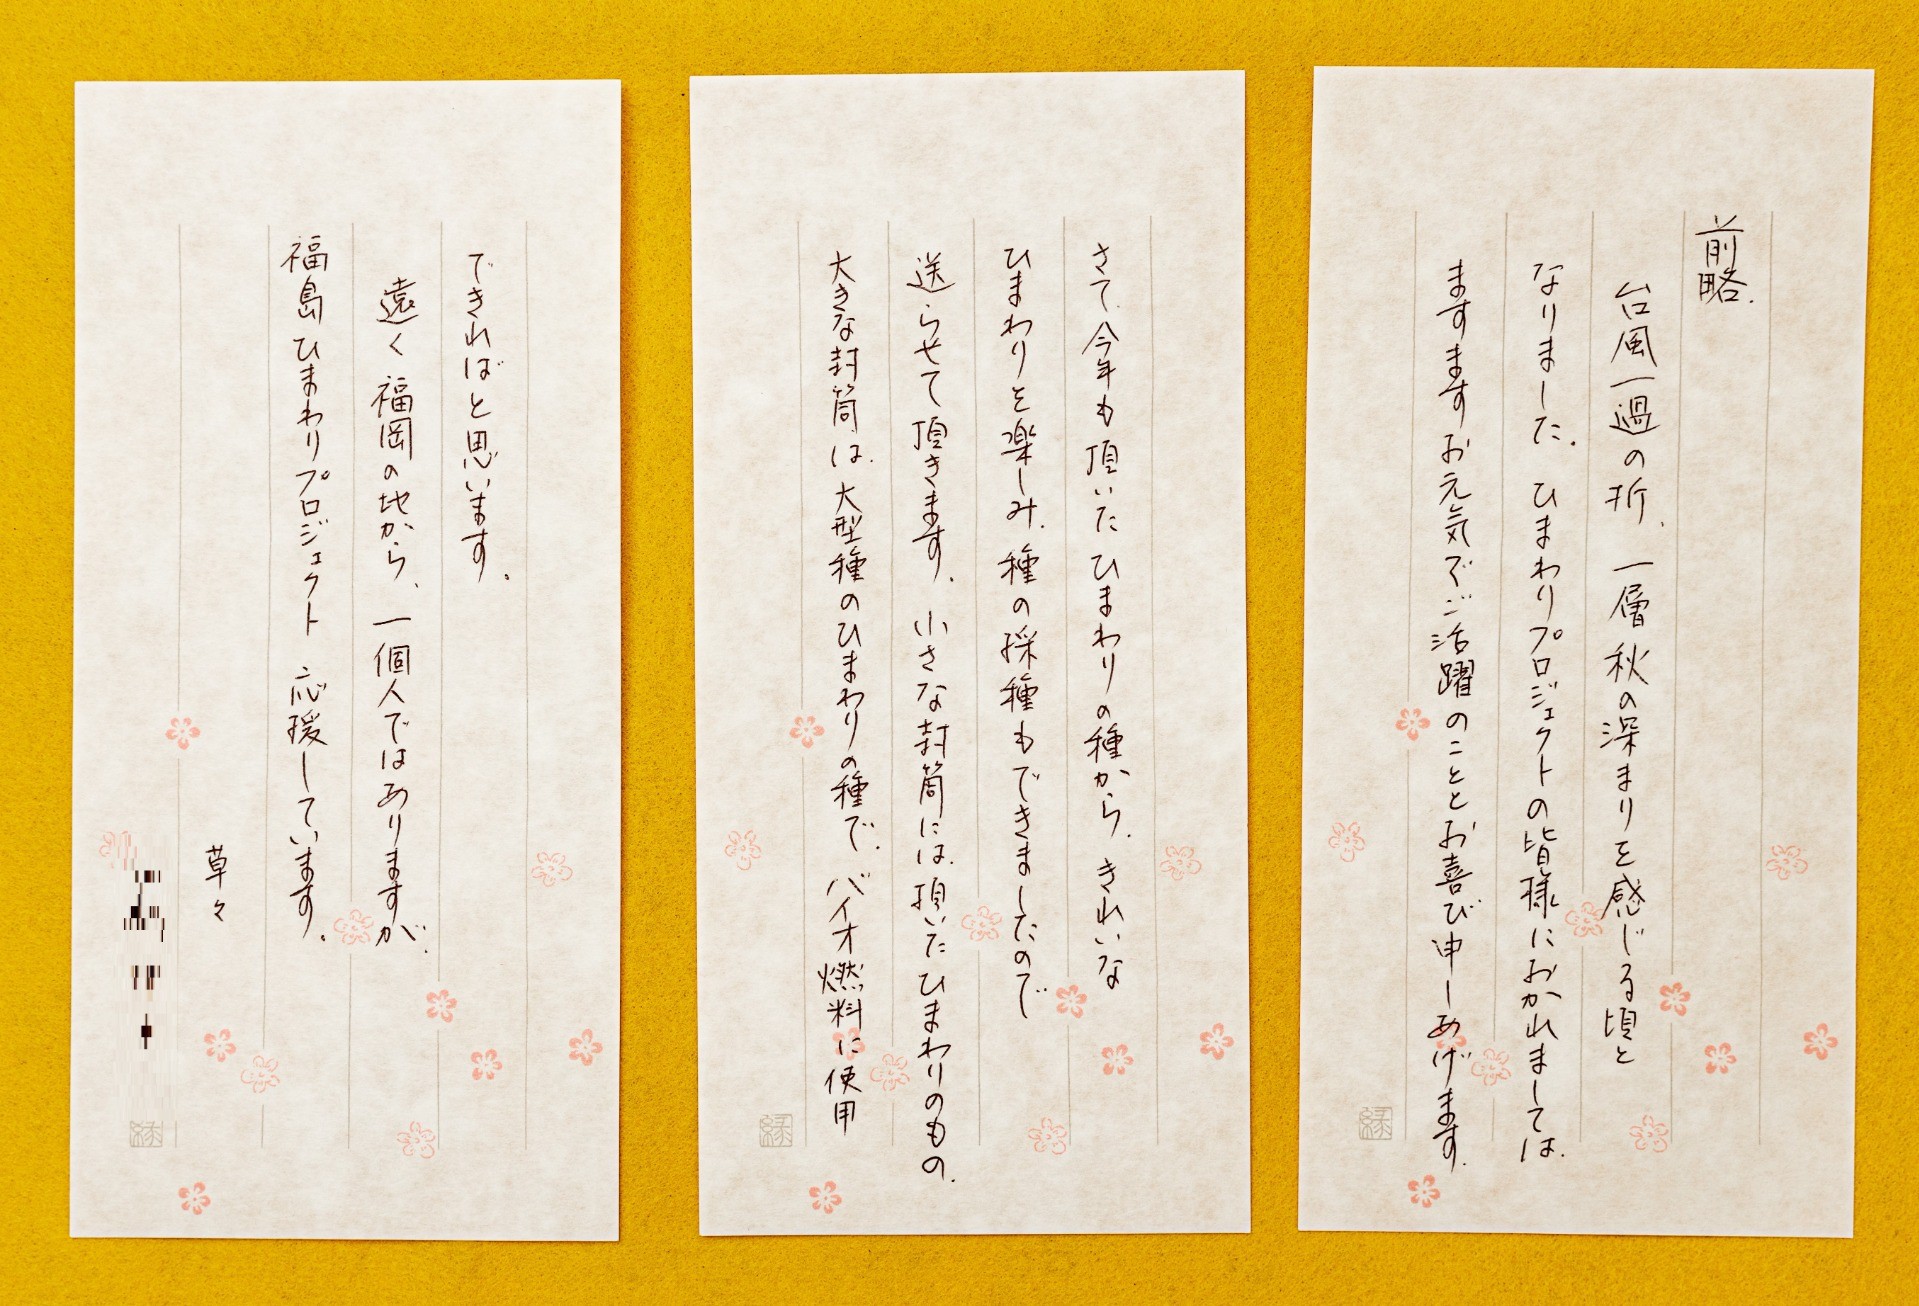 前略、
台風一過の折、一層秋の深まりを感じる頃と
なりました。ひまわりプロジェクトの皆様におかれましては、
ますますお元気でご活躍のこととお喜び申しあげます。
さて、今年も頂いたひまわりの種から、きれいな
ひまわりを楽しみ、種の採種もできましたので
送らせて頂きます。小さな封筒には、頂いたひまわりのもの、
大きな封筒は、大型種のひまわりの種で、バイオ燃料に使用
できればと思います。
遠く福岡の地から、一個人ではありますが、
福島ひまわりプロジェクト 応援しています。
草々
縁
縁
縁